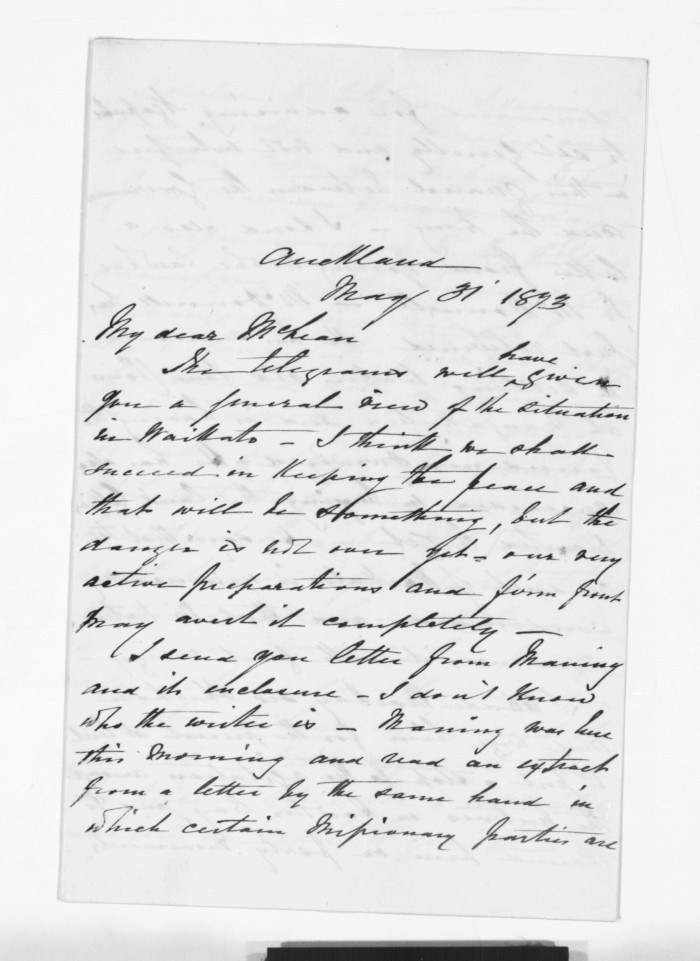 Auckland
May 31st 1873
My dear McLean
The telegrams will have given
you a general view of the situation
in Waikato - I think we shall
succeed in keeping the peace and
that will be something, but the
danger is not over yet - our very
active preparations and firm front
may avert it completely -
I send you letter from Maning
and its enclosure - I don't know
who the writer is - Maning was here
this morning and read an extract
from a letter by the same hand in
which certain Missionary parties are